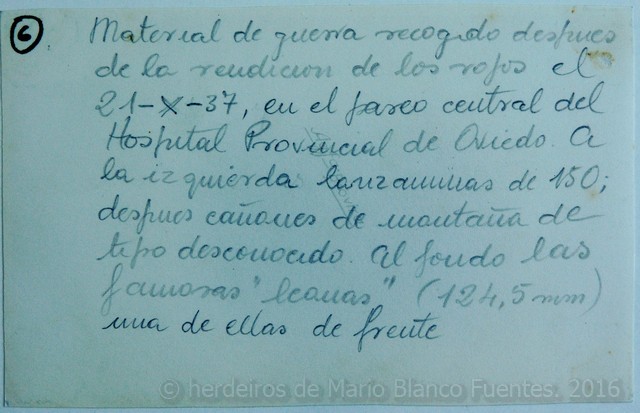 6
Material de guerra recogido despues
de la rendicion de los rojos el
21-X-37, en el paseo central del
Hospital Provincial de Oviedo. A
la izquierda lanzaminas de 150;
despues cañones de montaña de
tipo desconocido. Al fondo las
famosas "leonas" (124,5 mm)
una de ellas de frente
© herdeiros de Mario Blanco Fuentes. 2016